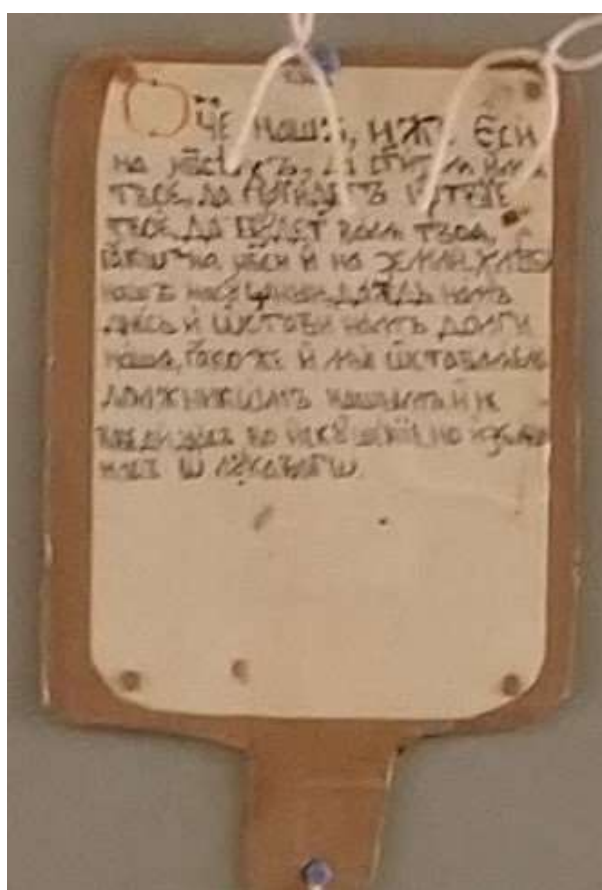 Ѻч҃е нашъ, иже єси
на нб҃сѣхъ, да ст҃итсѧ имѧ
твоє, да прїидетъ цр҃твїе
твоє, да бꙋдетъ волѧ твоѧ,
ꙗкѡ на нб҃си и на земли, хлѣбъ
нашъ насꙋщный даждь намъ
днесь и ѡстави намъ долги
наша, ꙗкоже и мы ѡставлѧемъ
должникѡмъ нашымъ и не
введи насъ во искꙋшенїе, но избави
насъ ѿ лꙋкавагѡ